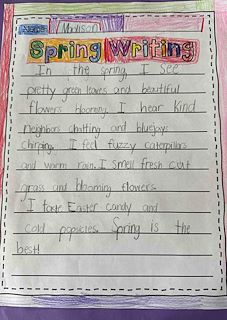 Name Madison
Spring Writing
In the spring, I see
pretty green leaves and beautiful
flowers blooming. I hear kind
neighbors chatting and bluejays
chirping. I feel fuzzy caterpillars
and warm rain. I smell fresh cut
grass and blooming flowers.
I taste Easter candy and
cold popsicles. Spring is the
best!